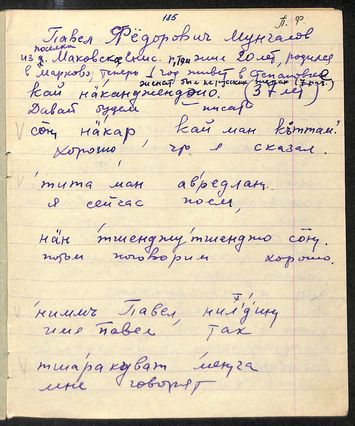 185
П. Ф.
Павел Фёдорович Мунгалов
посёлка
из д. Маковское Енис. р, Там жил 20 лет, родился
в Марково, теперь 1 год живет в Степановке
женат был на русских, ведах (? р-к.)
кай нäкандженджо. (37 лет)
Давай будем – писать
соӷ нäкар кай ман къттам.
Хорошо, что я сказал.
тита ман авредлаӷ
я сейчас поем,
нäн тшенджу тшенджо соӷ.
потом поговорим хорошо.
нимть Павел, нилдиӷ
имя Павел, так
тшаракуват меӷга
мне говорят